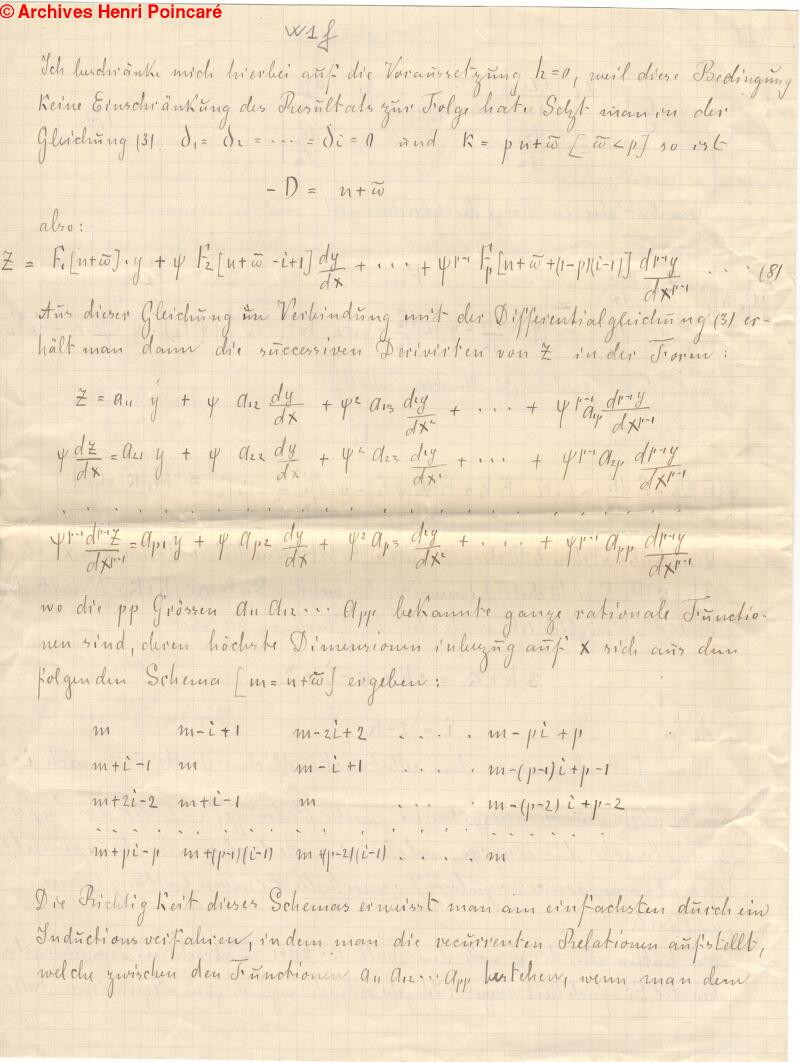 © Archives Henri Poincaré
Ich beschränke mich hierbei auf die Voraussetzung h=0, weil diese Bedingung
keine Einschränkung des Resultats zur Folge hat. Setzt man in der
Gleichung (3). δ₁ = δ₂ = ··· = δi = 0 und K = pn+ϖ [ϖ<p] so ist
- D = n+ϖ
also:
Z = F₁[n+ϖ]·y + ψ F₂[n+ϖ-i+1] dy/dx + ··· + ψᵖ⁻¹ Fp[n+ϖ+(1-p)(i-1)] dᵖ⁻¹y/dxᵖ⁻¹ ··· (8)
Aus dieser Gleichung in Verbindung mit der Differentialgleichung (3) er-
hält man dann die successiven Derivirten von Z in der Form:
Z = a₁₁ y + ψ a₁₂ dy/dx + ψ² a₁₃ d²y/dx² + ··· + ψᵖ⁻¹ a₁p dᵖ⁻¹y/dxᵖ⁻¹
ψ dz/dx = a₂₁ y + ψ a₂₂ dy/dx + ψ² a₂₃ d²y/dx² + ··· + ψᵖ⁻¹ a₂p dᵖ⁻¹y/dxᵖ⁻¹
. . . . . . . . . . . . . . . . . . . .
ψᵖ⁻¹ dᵖ⁻¹z/dxᵖ⁻¹ = ap₁ y + ψ ap₂ dy/dx + ψ² ap₃ d²y/dx² + ··· + ψᵖ⁻¹ app dᵖ⁻¹y/dxᵖ⁻¹
wo die pp Grössen a₁₁ a₁₂ ··· app bekannte ganze rationale Functio-
nen sind, deren höchste Dimensionen inbezug auf x sich aus dem
folgenden Schema [m = n+ϖ] ergeben:
m m-i+1 m-2i+2 . . . . m-pi+p
m+i-1 m m-i+1 . . . . m-(p-1)i+p-1
m+2i-2 m+i-1 m . . . m-(p-2)i+p-2
. . . . . . . . . . . . . . . . . . . .
m+pi-p m+(p-1)(i-1) m+(p-2)(i-1) . . . . m
Die Richtigkeit dieses Schemas erweisst man am einfachsten durch ein
Inductionsverfahren, indem man die recurrenten Relationen aufstellt,
welche zwischen den Functionen a₁₁ a₁₂ ··· app bestehen, wenn man dem